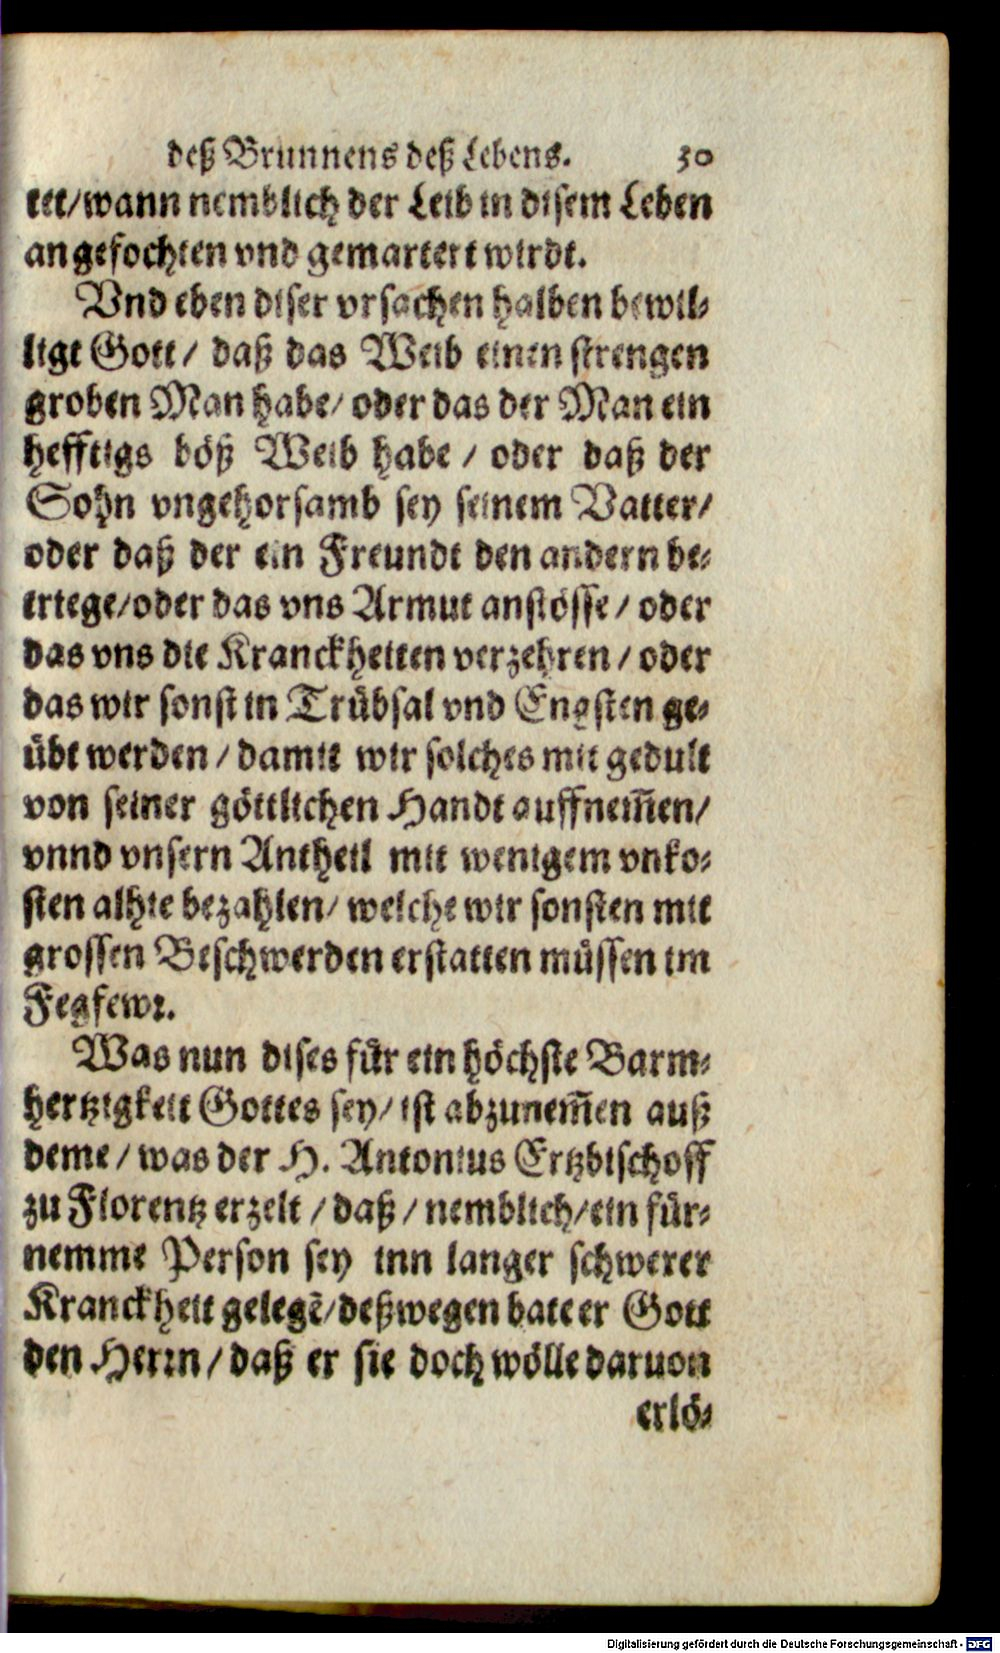 deß Brunnens deß Lebens. 30
tet/wann nemblich der Leib in disem Leben
angefochten vnd gemartert wirdt.
Vnd eben diser vrsachen halben bewil⸗
ligt Gott/ daß das Weib einen strengen
groben Man habe/ oder das der Man ein
hefftigs böß Weib habe / oder daß der
Sohn vngehorsamb sey seinem Vatter/
oder daß der ein Freundt den andern be⸗
triege/oder das vns Armut anstösse / oder
das vns die Kranckheiten verzehren / oder
das wir sonst in Trübsal vnd Engsten ge⸗
übt werden / damit wir solches mit gedult
von seiner göttlichen Handt auffnem̃en/
vnnd vnsern Antheil mit wenigem vnko⸗
sten alhie bezahlen/ welche wir sonsten mit
grossen Beschwerden erstatten müssen im
Fegfewr.
Was nun dises für ein höchste Barm⸗
hertzigkeit Gottes sey/ ist abzunem̃en auß
deme / was der H. Antonius Ertzbischoff
zu Florentz erzelt / daß / nemblich/ein für⸗
nemme Person sey inn langer schwerer
Kranckheit gelegẽ/deßwegen bate er Gott
den Herrn/ daß er sie doch wölle daruon
erlö⸗
Digitalisierung gefördert durch die Deutsche Forschungsgemeinschaft - DFG